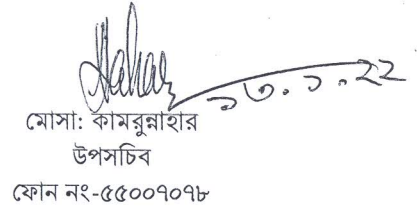 ১৩.১.২২
মোসা: কামরুন্নাহার
উপসচিব
ফোন নং-৫৫০০৭০৭৮